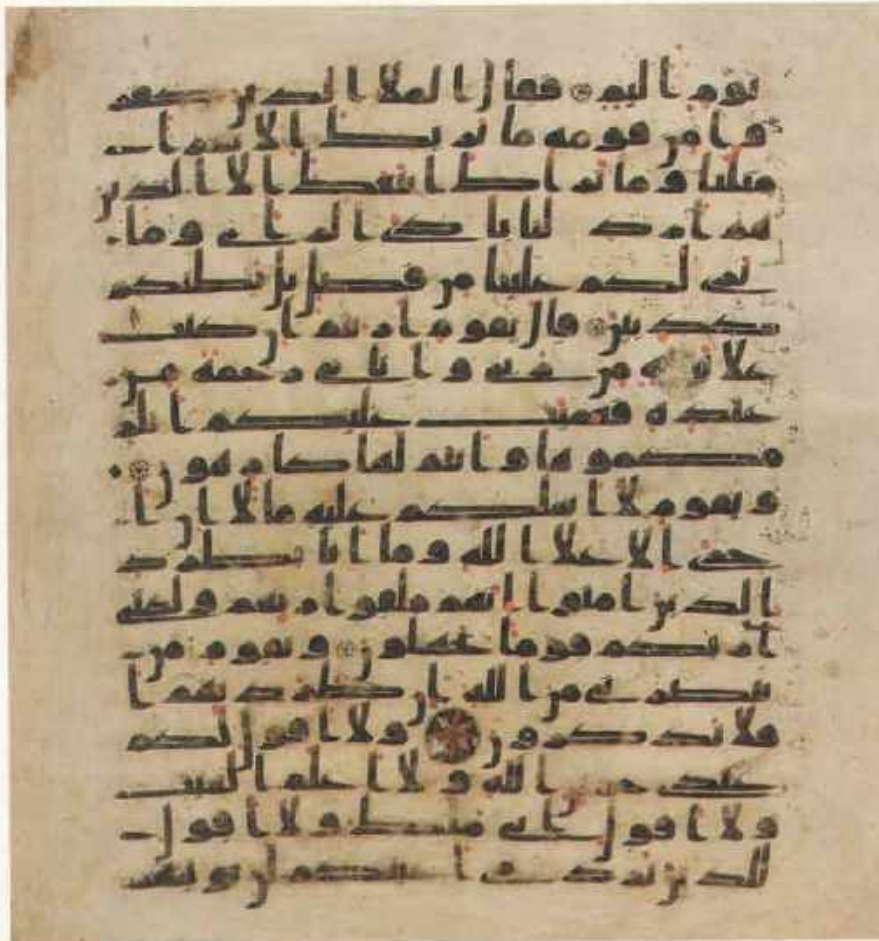 يوم اليم فقال الملا الذين كفر
وا من قومه ما نريك الا بشرا
مثلنا وما نريك اتبعك الا الذين
هم اراذلنا بادي الراي وما
نرى لكم علينا من فضل بل نظنكم
كذبين قال يقوم اريتم ان كنت
علا بينة من ربي واتيني رحمة من
عنده فعميت عليكم انلز
مكموها وانتم لها كارهون
ويقوم لا اسلكم عليه مالا ان ا
جري الا علا الله وما انا بطارد
الذين امنوا انهم ملقوا ربهم ولكني
اريكم قوما تجهلون ويقوم من
ينصرني من الله ان طردتهم ا
فلا تذكرون ولا اقول لكم
عندي خزين الله ولا اعلم الغيب
ولا اقول اني ملك ولا اقول
للذين تزدري اعينكم لن يوتيهم